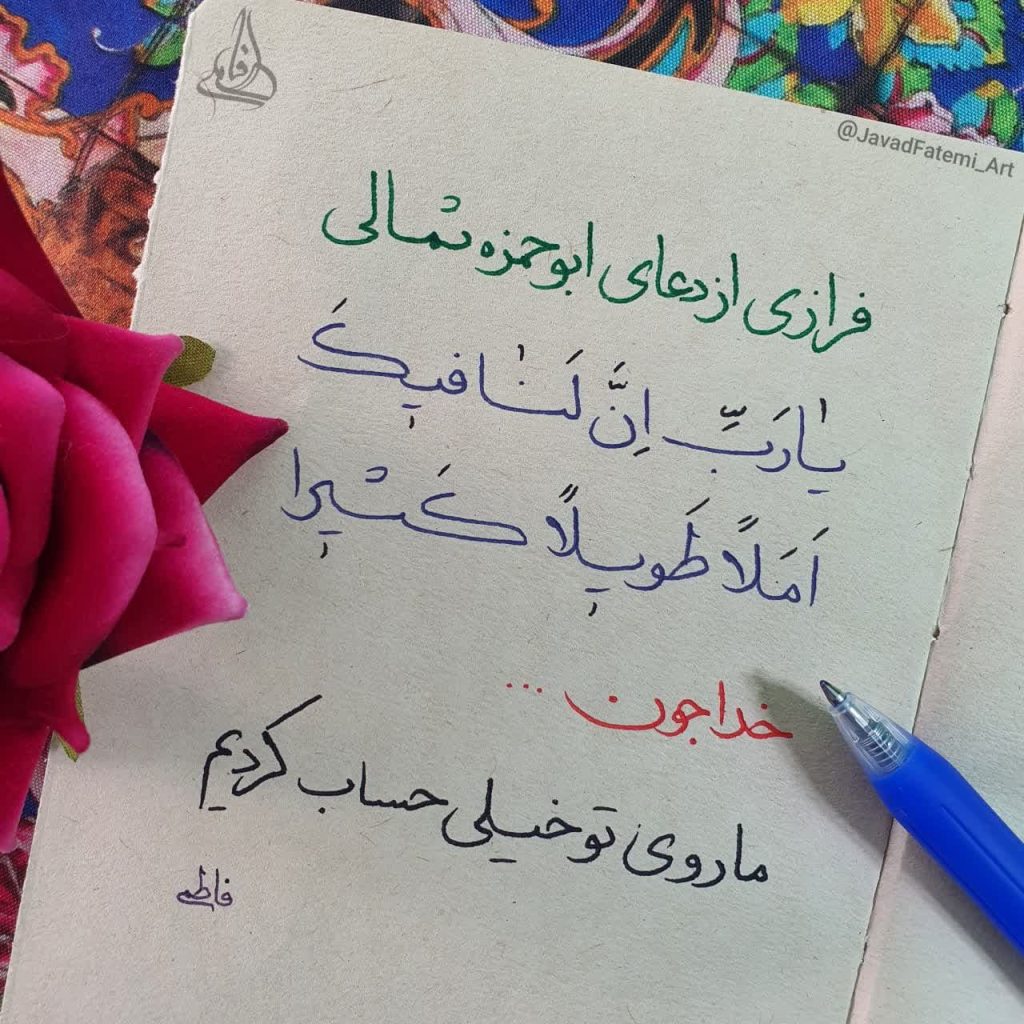 @JavadFatemi_Art
فرازی از دعای ابوحمزه ثمالی
یٰا رَبِّ اِنَّ لَنٰا فیٖکَ
اَمَلاً طَویٖلاً کَثیٖرا
خدا جون ...
ما روی تو خیلی حساب کردیم
فاطمی